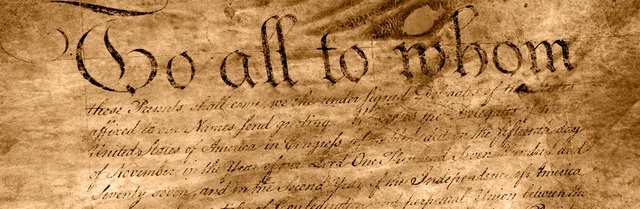 To all to whom
these Presents shall come, we the under signed Delegates of the States
affixed to our Names send greeting. Whereas the Delegates of the
United States of America in Congress assembled did on the fifteenth day
of November in the Year of our Lord One Thousand Seven Hundred and
Seventy seven, and in the Second Year of the Independence of America
Confederation and perpetual Union between the